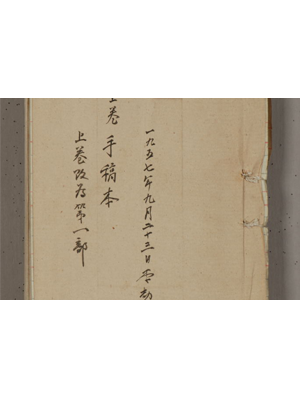 一九五七年九月二十三日
上卷 手稿本
上卷改为第一部